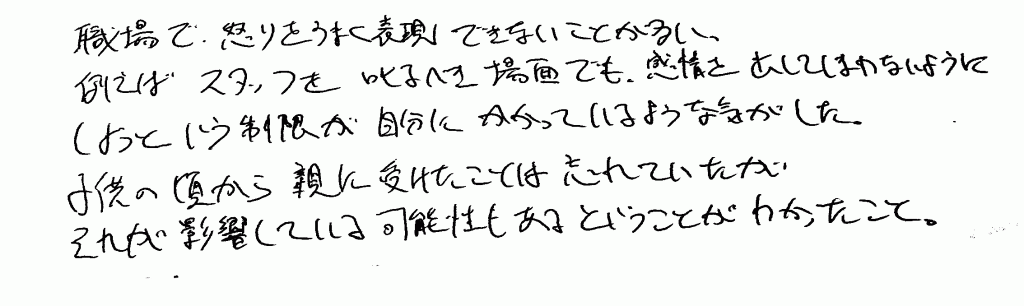 職場で、怒りをうまく表現できないことが多い、
例えば スタッフを 叱るべき 場面でも、感情を 出してしまわないように
しようという制限が 自分に かかっているような気がした。
子供の頃から 親に受けたことは 忘れていたが
それが影響している可能性もあるということがわかったこと。